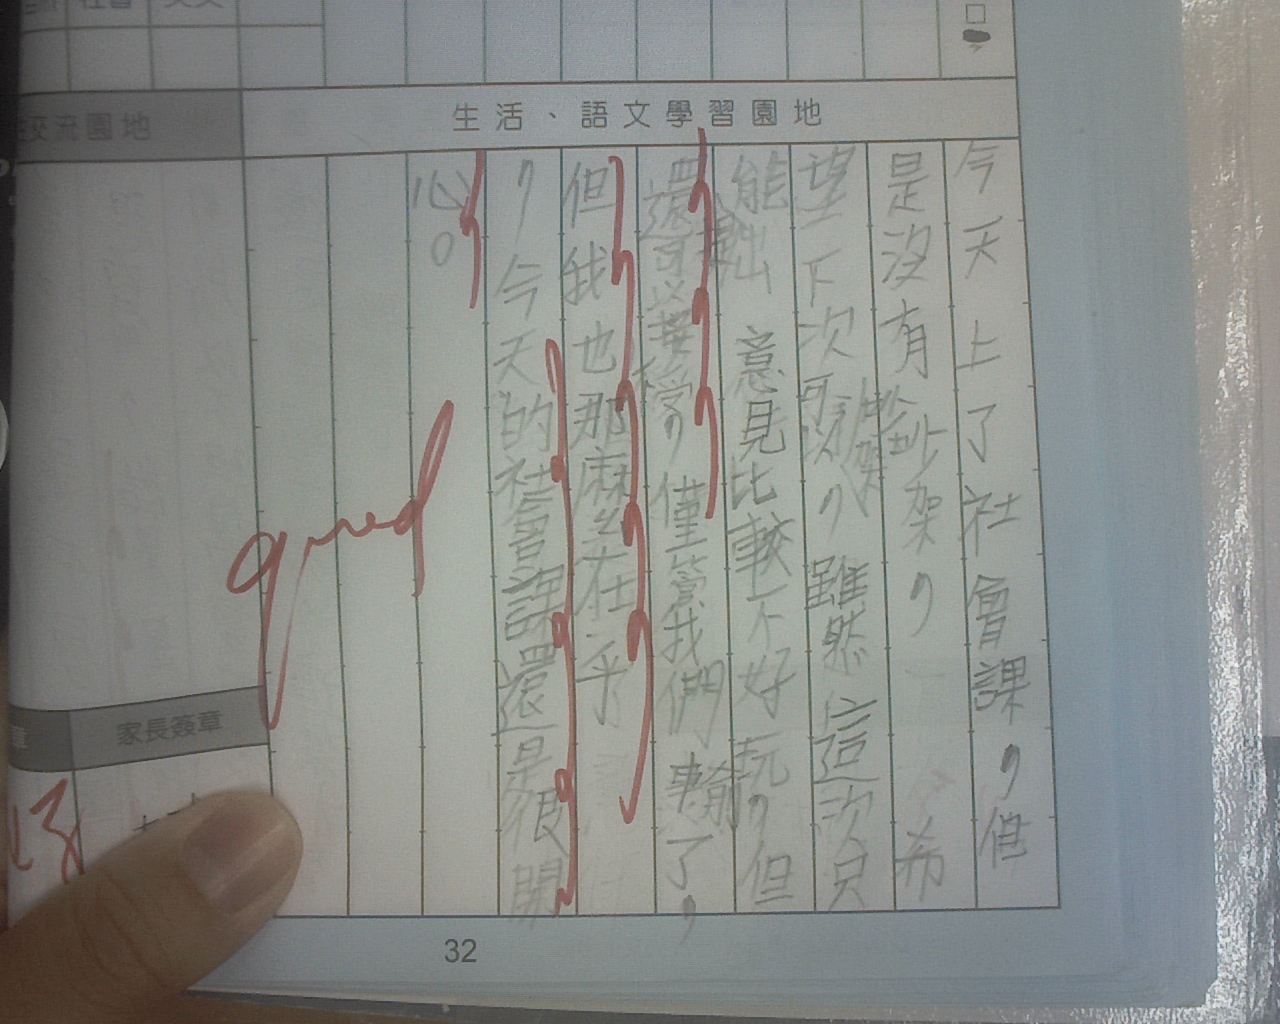 社會
英文
生活、語文學習園地
交流園地
今天上了社會課，但
是沒有吵架，希
望下次可以吵架，雖然這次只
能出意見比較不好玩，但
還可以接受，僅管我們輸了，
但我也那麼在乎
，今天的社會課還是很開
心。
good
家長簽章
32